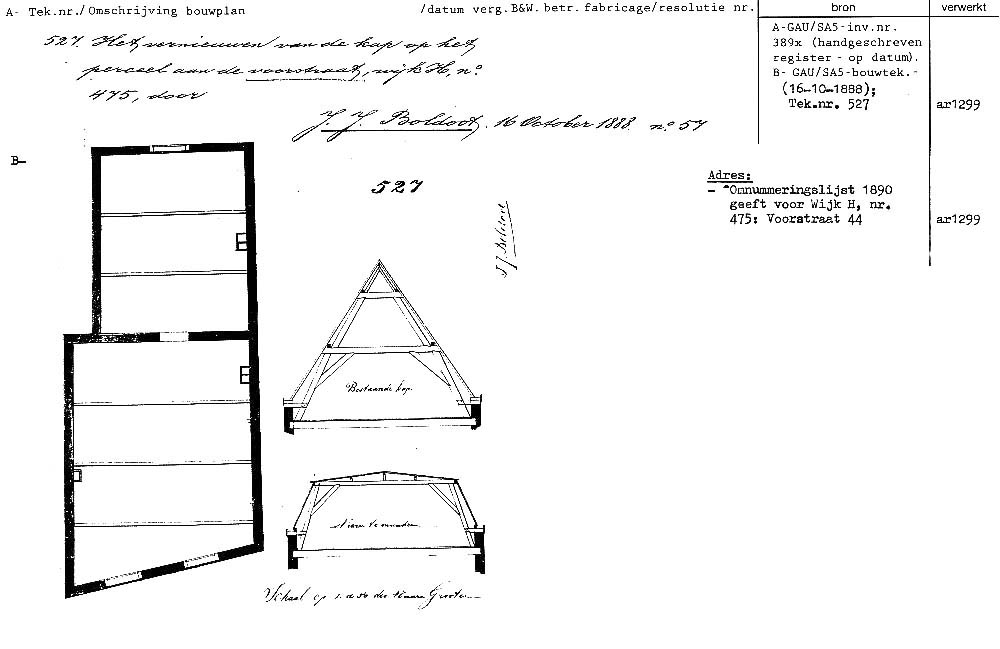 A- Tek.nr./Omschrijving bouwplan /datum verg.B&W. betr. fabricage/resolutie nr. bron verwerkt
527. Het vernieuwen van de kap op het
perceel aan de voorstraat, wijk H, no.
475, door
J. J. Boldoot, 16 October 1888. no. 57
A-GAU/SA5-inv.nr.
389x (handgeschreven
register - op datum).
B- GAU/SA5-bouwtek.-
(16-10-1888);
Tek.nr. 527 ar1299
B-
527
Adres:
- "Omnummeringslijst 1890
geeft voor Wijk H, nr.
475: Voorstraat 44 ar1299
J J Boldoot
Bestaande kap.
Nieuw te maken
Schaal op 1 a 50 der ware Grootte